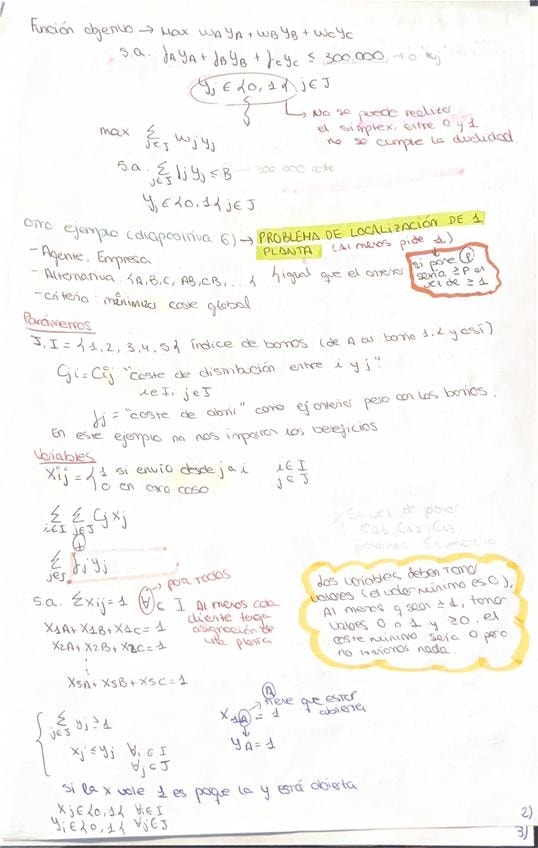 Función objetivo → Max wAyA + wByB + wCyC
s.a. fAyA + fByB + fCyC ≤ 300.000
yj ∈ {0,1{ j∈J
→ No se puede realizar
el simplex, entre 0 y 1
no se cumple la dualidad.
max Σ j∈J wjyj
s.a. Σ j∈J fjyj ≤ B
yj ∈ {0,1{ j∈J
Otro ejemplo (diapositiva 6) → PROBLEMA DE LOCALIZACIÓN DE 1
PLANTA (Al menos pide 1)
- Agente. Empresa
- Alternativa: {A,B,C, AB,CB, ... { igual que el anterior
- criterio: minimizar coste global
si pone P
sería ≥P en
vez de ≥1
Parámetros
J, I = {1,2,3,4,5{ índice de barrios (de A al barrio 1,2 y así)
Cji = Cij "coste de distribución entre i y j"
i∈I, j∈J
fj = "coste de abrir" como ej anterior pero con los barrios.
En este ejemplo no nos importan los beneficios
Variables
Xij = {1 si envío desde j a i i∈I
0 en otro caso j∈J
Σ i∈I Σ j∈J Cj xj
+
Σ j∈J fjyj
En vez de poner
CA1, CA2, CA3
ponemos Esumatorio
→ para todas
s.a. Σxij = 1 ∀ ⊂ I Al menos cada
cliente tenga
asignación de
una planta
X1A + X1B + X1C = 1
X2A + X2B + X2C = 1
⋮
X5A + X5B + X5C = 1
Las variables deben tomar
valores (el valor mínimo es 0),
Al menos q sean ≥1, tomar
valores 0 o 1 y ≥0, el
coste mínimo sería 0 pero
no haríamos nada.
Σ j∈J yj ≥ 1
xj ≤ yj ∀i∈I
∀j∈J
A
tiene que estar
abierta
X1A = 1
yA = 1
si la x vale 1 es porque la y está abierta
Xj∈{0,1{ ∀i∈I
Yj∈{0,1{ ∀j∈J
2)
3)